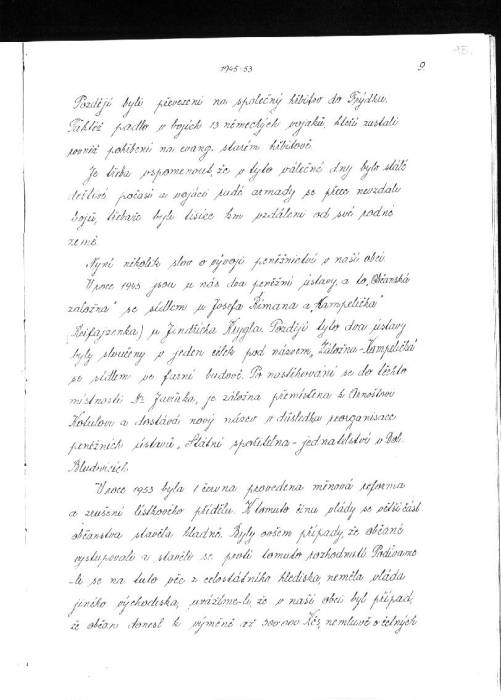 15.
1945-53
9.
Později byli převezeni na společný hřbitov do Frýdku.
Taktéž padlo v bojích 13 německých vojáků, kteří zůstali
rovněž pohřbeni na evang. starém hřbitově.
Je třeba vzpomenout, že v tyto válečné dny bylo stálé
deštivé počasí a vojáci rudé armády se přece nevzdali
bojů, třebaže byli tisíce km vzdáleni od své rodné
země.
Nyní několik slov o vývoji peněžnictví v naší obci.
V roce 1945 jsou u nás dva peněžní ústavy a to „Občanská
záložna" se sídlem u Josefa Římana a „Kampelička"
(Rifajzenka) u Jindřicha Krygla. Později tyto dva ústavy
byly sloučeny v jeden celek pod názvem „Záložna-Kampelička
se sídlem ve farní budově. Po nastěhování se do těchto
místností Dr. je záložna přemístěna k Arnoštovi
Kotulovi a dostává nový název v důsledku reorganisace
peněžních ústavů „Státní spořitelna - jednatelství v Dol.
Bludovicích.
V roce 1953 byla 1 června provedena měnová reforma
a zrušení lístkového přídělu. K tomuto činu vlády se větší část
občanstva stavěla kladně. Byly ovšem případy, že občané
vystupovali a stavěli se proti tomuto rozhodnutí. Podíváme
-li se na tuto věc z celostátního hlediska, neměla vláda
jiného východiska, uvážíme-li, že v naší obci byl případ,
že občan donesl k výměně až 300.000 Kčs, nemluvě o četných